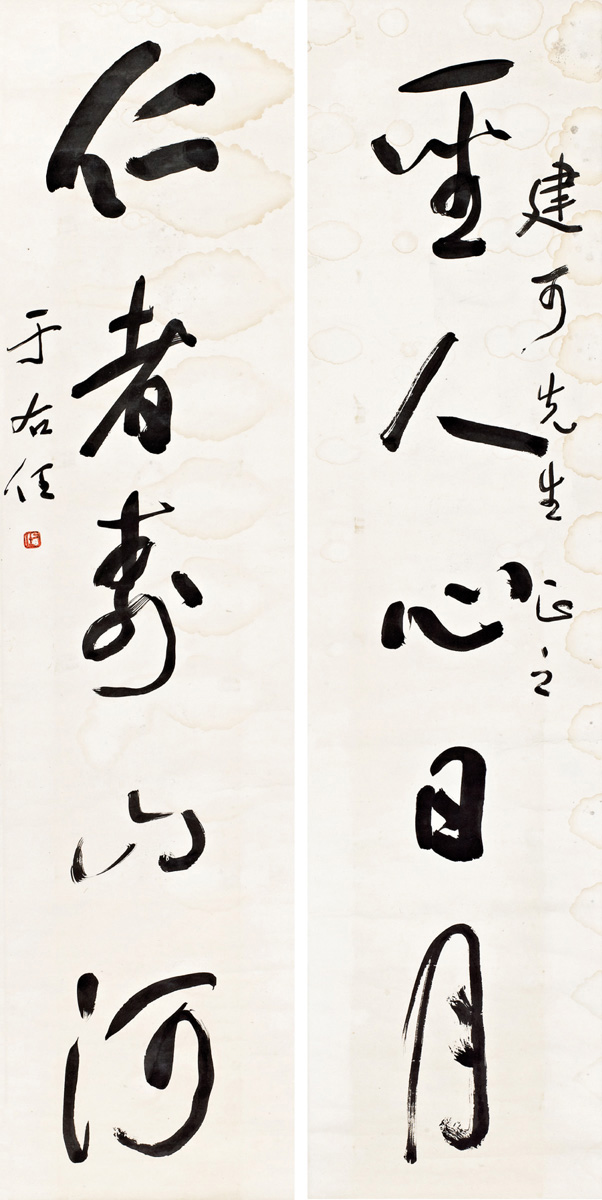 建可先生正之
聖人心日月
仁者壽山河
于右任